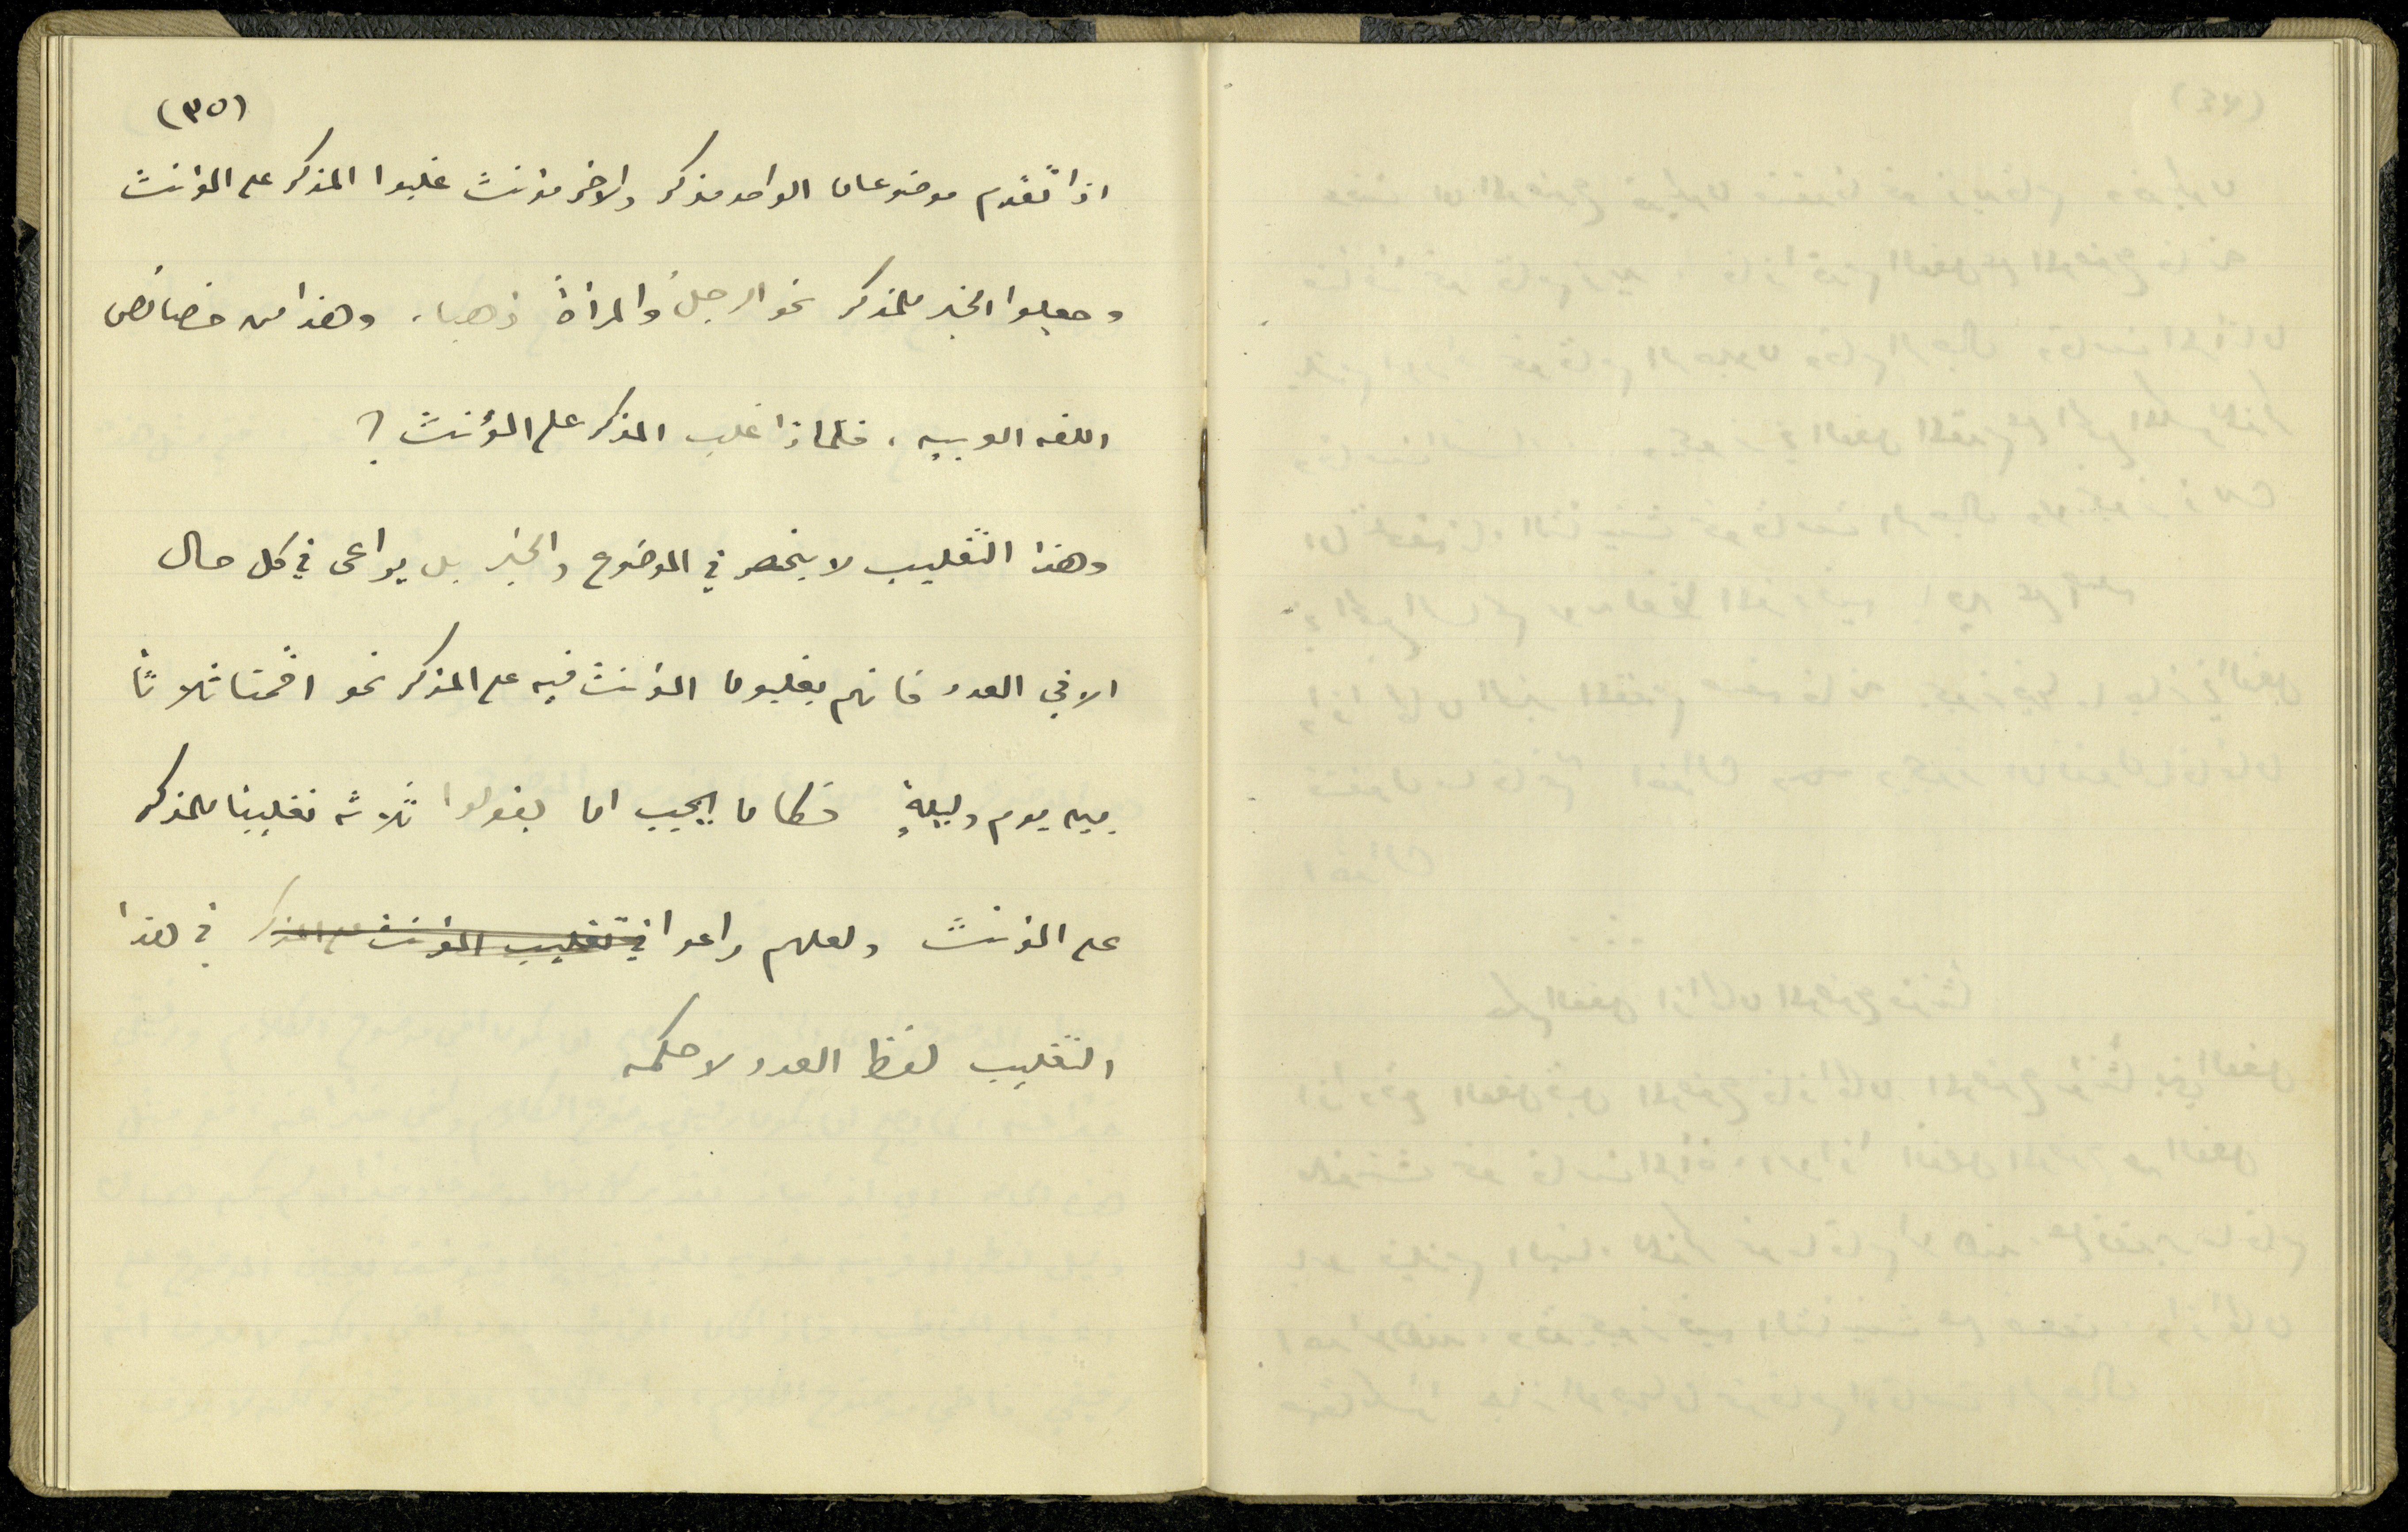 (٣٥)
اذا تقدم موضوعان الواحد مذكر والاخر مؤنث غلبوا المذكر على المؤنث
وجعلوا الخبر للمذكر نحو الرجلُ والمرأةُ ذهبا، وهذا من خصائص
اللغه العربيه، فلماذا غلب المذكر على المؤنث؟
وهذا التغليب لا ينحصر في الموضوع والخبر بل يراعى في كل حال
الا في العدد فانهم يغلبون المؤنث فيه على المذكر نحو اقمنا ثلاثاً
بين يوم وليلةٍ فكان يجب ان يقولوا ثلاثه تغليبا للمذكر
على المؤنث ولعلهم راعوا في تغليب المؤنث على المذكر في هذا
التغليب لفظ العدد لا حكمه